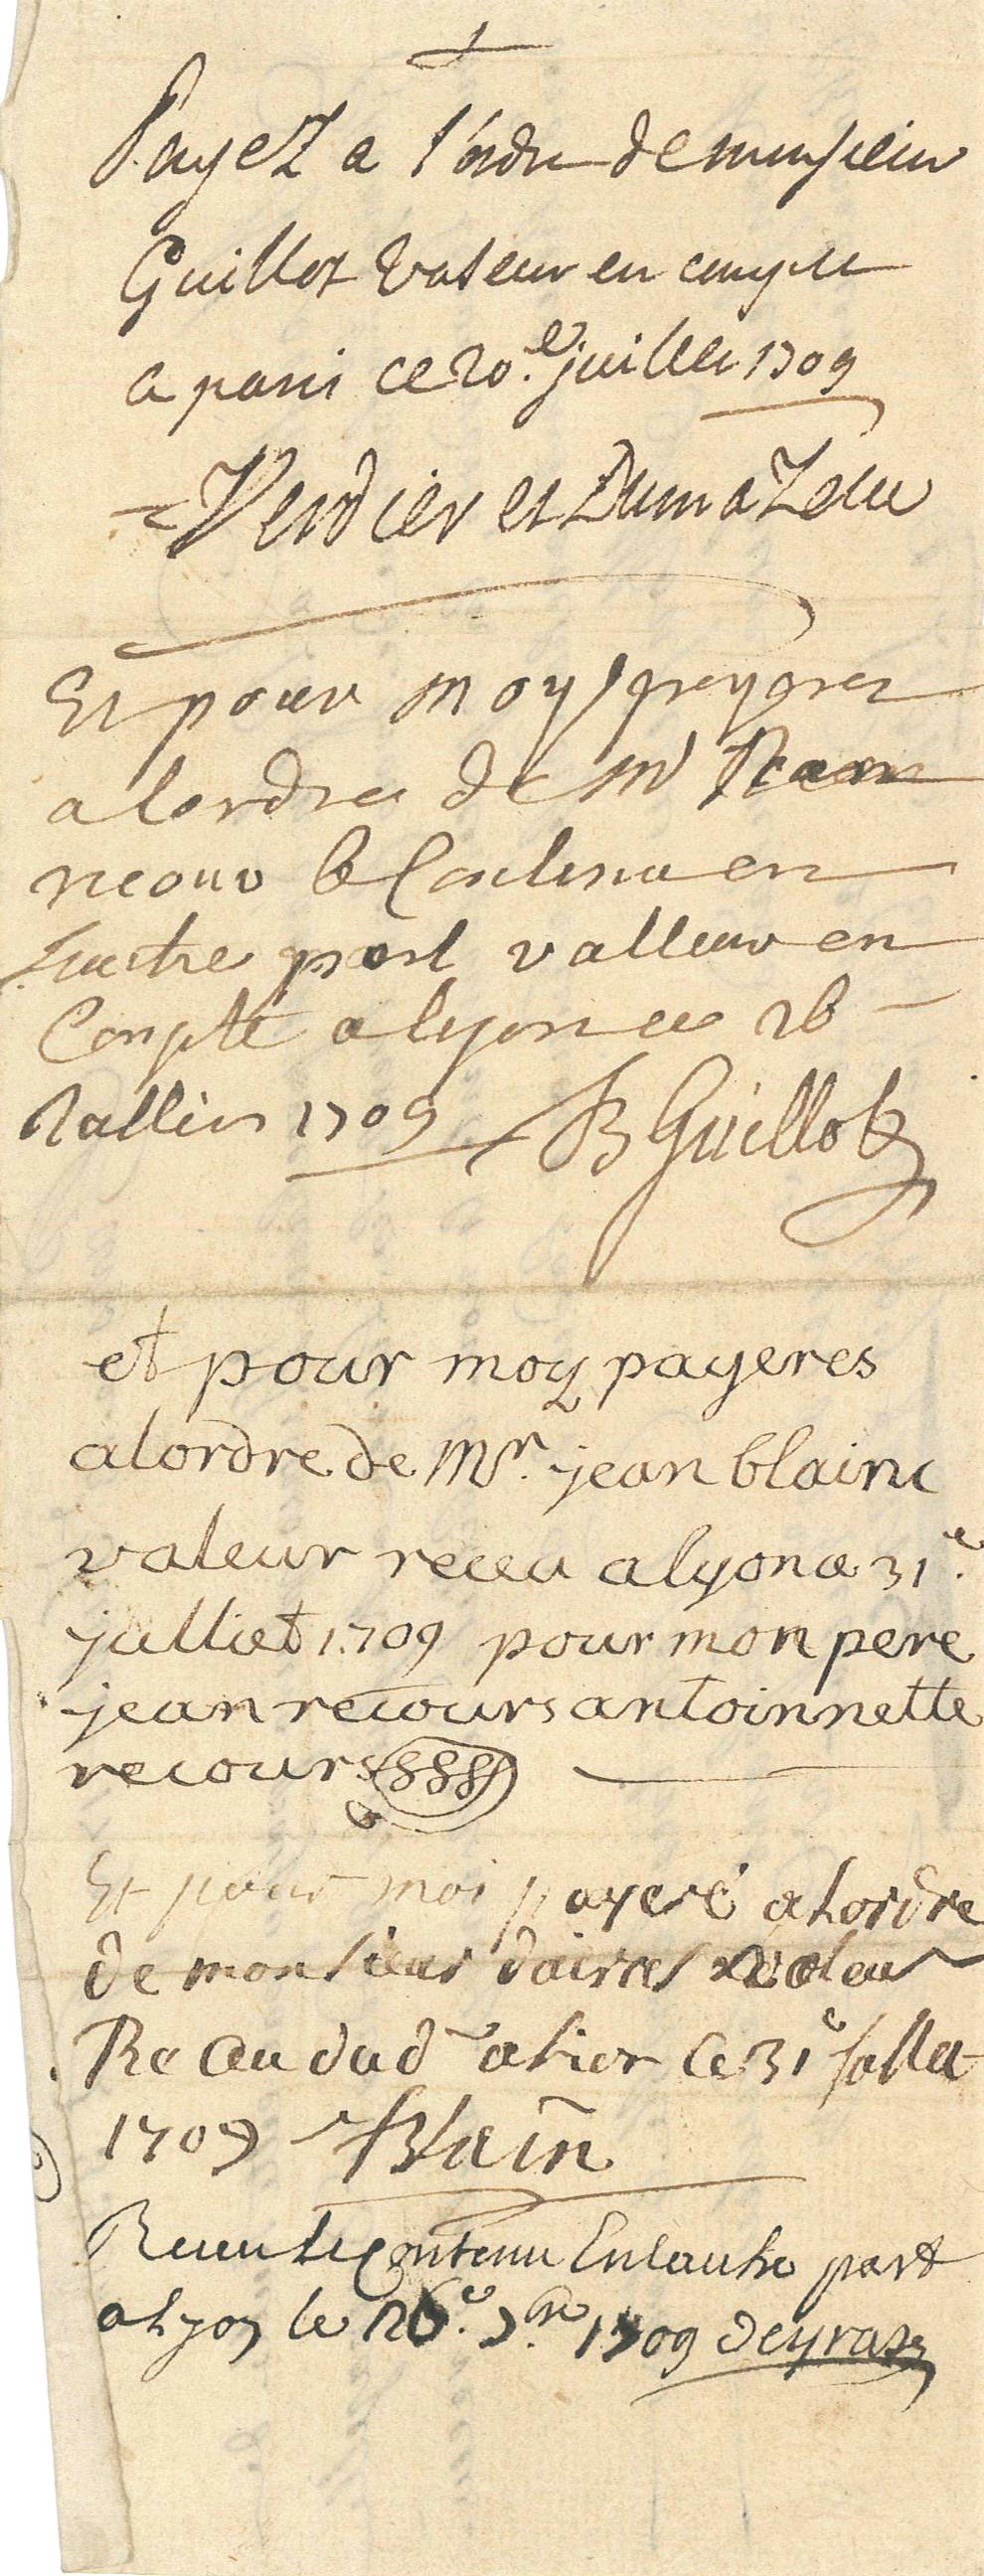 Payez a l'ordre de monsieur
Guillot valeur en compte
a paris ce 20.e juillet 1709
Verdier et Dumazeau
Et pour moy payerez
a lordre de mr Jean
recour le Contenu en
lautre part valleur en
Compte a lyon ce 26
Julliet 1709 B Guillot
et pour moy payeres
a lordre de Mr. jean blainc
valeur receu a lyon ce 31e.
julliet 1709 pour mon pere
jean recours antoinnette
recours
Et pour moi payeré a lordre
de monsieur valeur
Receu dud a lion Ce 31e
1709 Blain
Receu le Contenu En lautre part
a Lyon le 26e. 7bre 1709 deyras